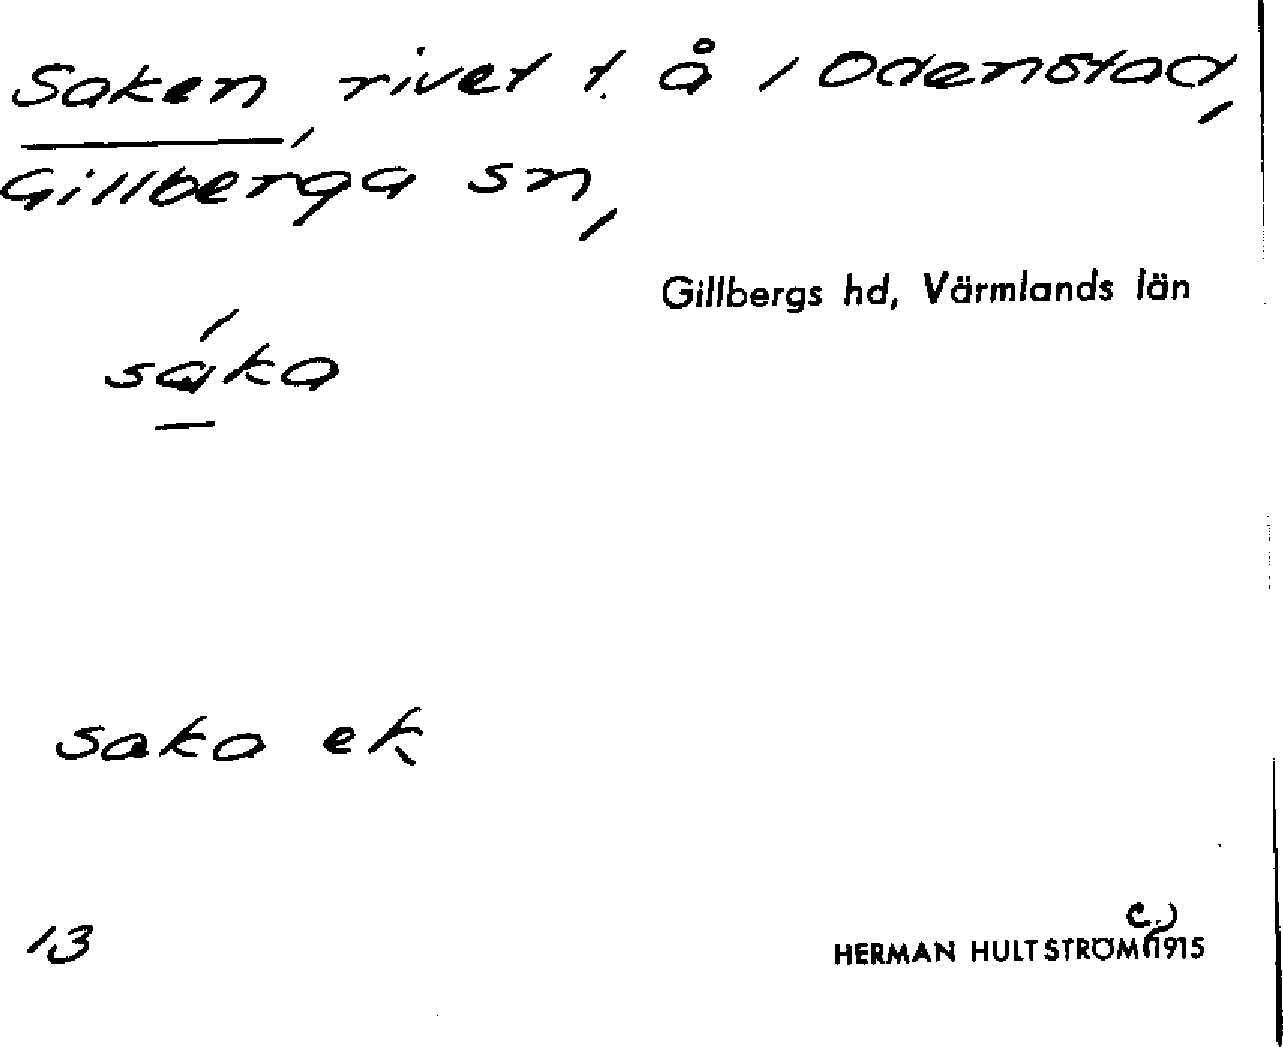 Saken, rivet t. å i Odenstad,
Gillberga sn,
Gillbergs hd, Värmlands län
sáka
saka ek
13
HERMAN HULTSTRÖM (c.) 1915